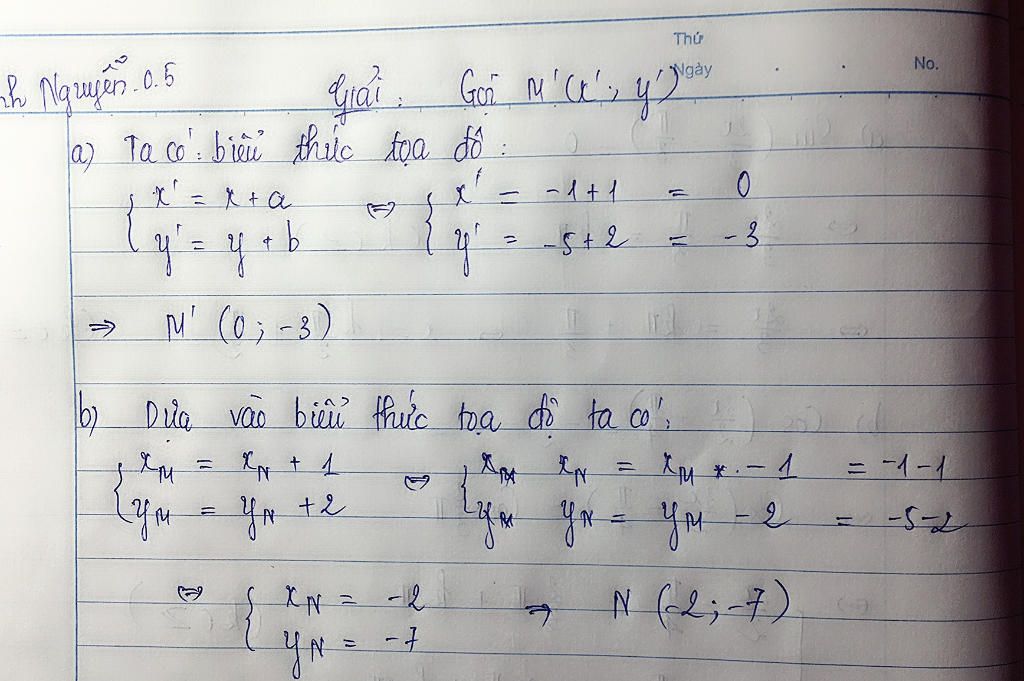 Thứ
Ngày . . No.
nh Nguyễn.0.5 Giải: Gọi M'(x'; y')
a) Ta có: biểu thức tọa độ:
{ x' = x + a ⇔ { x' = -1+1 = 0
{ y' = y + b { y' = -5+2 = -3
⇒ M' (0; -3)
b) Dựa vào biểu thức tọa độ ta có:
{ x_M = x_N + 1 ⇔ { x_N = x_M - 1 = -1-1
{ y_M = y_N + 2 { y_N = y_M - 2 = -5-2
⇔ { x_N = -2 ⇒ N (-2; -7)
{ y_N = -7